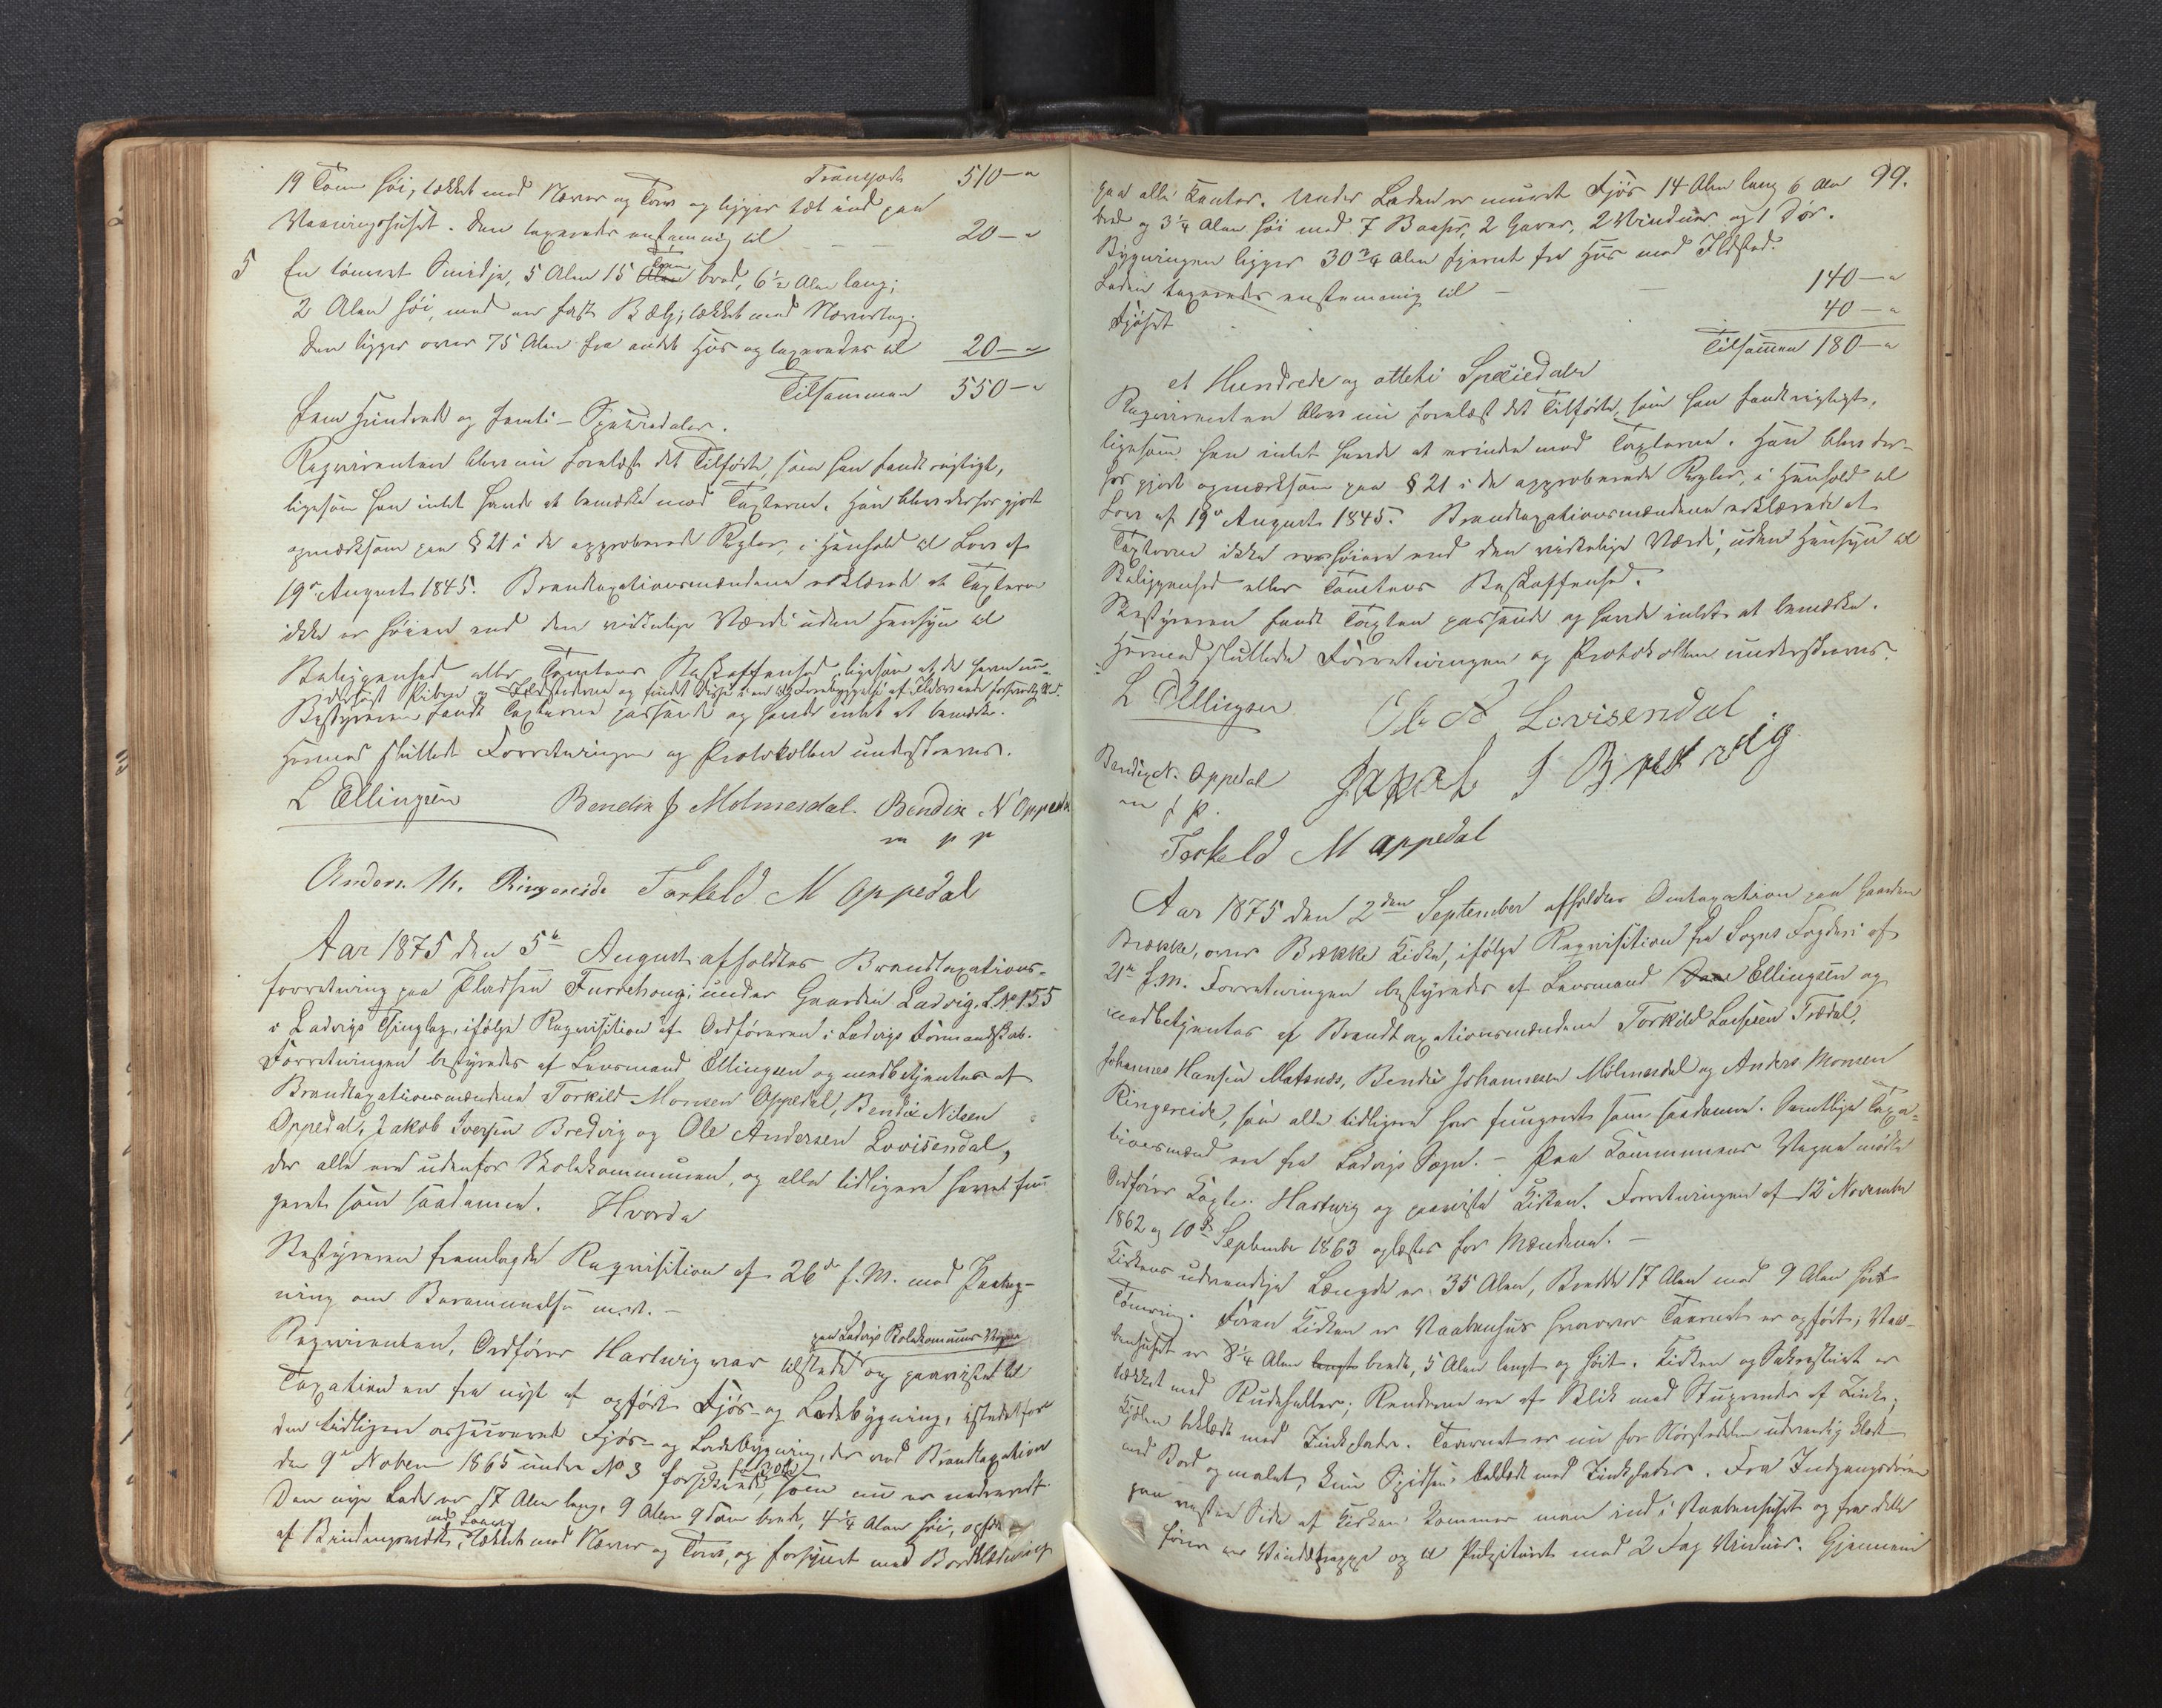 Transport 510 - "
19 Tom høi, tækket med Næver og Torv og ligger tæt ind paa
Vaaningshuset. Den taxeredes enstemmig til 20 - "
5 En tømret Smidje, 5 Alen 15 Tom bred, 6 1/2 Alen lang;
2 Alen høi, med en fast Bælg; tækket med Nævertag.
Den ligger over 75 Alen fra andet Huus og taxeredes til 20 - "
Tilsammen 550 - "
fem Hundrede og femti - Speciedaler.
Requirenten blev nu forelæst det Tilførte, som han fandt rigtigt,
ligesom han intet havde at bemærke mod Taxterne. Han blev derhos gjort
opmærksom paa § 21 i de approberede Regler, i Henhold til Lov af
19de August 1845. Brandtaxationsmændene erklærede at Taxterne
ikke er høiere end den virkelige Værdi uden Hensyn til
Beliggenhed eller Tomtens Beskaffenhed, ligesom at de have
Bestyreren fandt Taxterne passende og havde intet at bemærke.
Hermed sluttet Forretningen og Protokollen underskreves.
L Ellingsen Bendix J Molmesdal. Bendix N Oppedal
m p p
Anders M. Ringereide Torkeld M Oppedal
Aar 1875 den 5te August afholdtes Brandtaxations-
forretning paa Pladsen Furrehaug, under Gaarden Ladvig, L.No 155
i Ladvigs Thinglag, ifølge Requisition af Ordføreren i Ladvigs Formandskab.
Forretningen bestyredes af Lensmand Ellingsen og medbetjentes af
Brandtaxationsmændene Torkild Monsen Oppedal, Bendix Nilsen
Oppedal, Jakob Iversen Bredvig og Ole Andersen Lovisendal,
der alle ere udenfor Skolekommunen, og alle tidligere have fun-
geret som saadanne. Hvorda
Bestyreren fremlagde Requisition af 26de f.M. med Paateg-
ning om Berammelse m.v. -
paa Ladvigs Skolekommunes Vegne
Requirenten, Ordfører Hartwig var tilstede og paaviste til
Taxation en fra nyt af opført Fjøs- og Ladebygning, istedetfor
den tidligere assurerede Fjøs- og Ladebygning, der ved Brandtaxation
den 9de Novem 1865 under No 3 forsikret, som nu er nedrevet.
Den nye Lade er 17 Alen lang, 9 Alen 9 Tom bred, 4 1/4 Alen høi, opført
af Bindingsværk, tækket med Næver og Torv, og forsynet med Bordklædning
99.
paa alle Kanter. Under Laden er muret Fjøs 14 Alen lang 6 Alen
bred og 3 1/4 Alen høi med 7 Baaser, 2 Garer, 2 Vinduer og 1 Dør.
Bygningen ligger 30 3/4 Alen fjernet fra Huus med Ildsted.
Laden taxeredes enstemmig til - - 140 - "
Fjøset 40 - "
Tilsammen 180 - "
et Hundrede og otteti Speciedaler
Requirenten blev nu forelæst det Tilførte, som han fandt rigtigt,
ligesom han intet havde at erindre mod Taxterne. Han blev der-
hos gjort opmærksom paa § 21 i de approberede Regler, i Henhold til
Lov af 19de August 1845. Brandtaxationsmændene erklærede at
Taxterne ikke er høiere end den virkelige Værdi, uden Hensyn til
Beliggenhed eller Tomtens Beskaffenhed.
Bestyreren fandt Taxten passende og havde intet at bemærke.
Hermed sluttede Forretningen og Protokollen underskreves.
L Ellingsen Ole A Lovisendal.
Bendix N. Oppedal Jakob I Bredvig
m f p.
Torkeld M Oppedal
Aar 1875 den 2den September afholdtes Omtaxation paa Gaarden
Brække, over Brække Kirke, ifølge Requisition fra Sogns Fogderi af
21de f.M. Forretningen bestyredes af Lensmand Ellingsen og
medbetjentes af Brandtaxationsmændene Torkild Larsen Trædal,
Johannes Hansen Matsnæs, Bendix Johannesen Molmesdal og Anders Monsen
Ringereide, som alle tidligere har fungeret som saadanne. Samtlige Taxa-
tionsmænd ere fra Ladvigs Sogn. - Paa Kommunens Vegne mødte
Ordfører Hartwig og paaviste Kirken. Forretningen af 12te November
1862 og 10de September 1863 oplæstes for Mændene. -
Kirkens udvendige Længde er 35 Alen, Bredde 17 Alen med 9 Alen høit
Tømring. Foran Kirken er Vaabenhus hvorover Taarnet er opført; Vaa-
benhuset er 8 1/4 Alen bredt, 5 Alen langt og høit. Kirken og Sakristiet er
tækket med Rudeheller; Renderne ere af Blik med af Zink;
Kjølen beklædt med Zinkplader. Taarnet er nu for Størstedelen udvendig klædt
med Bord og malet, kun Spidsen beklædt med Zinkplader. Fra Indgangsdøren
paa vestre Side af Kirken kommer man ind i Vaabenhuset og fra dette
fører en Vindeltrappe op til Pulpituret med 2 Fag Vinduer. Gjennem